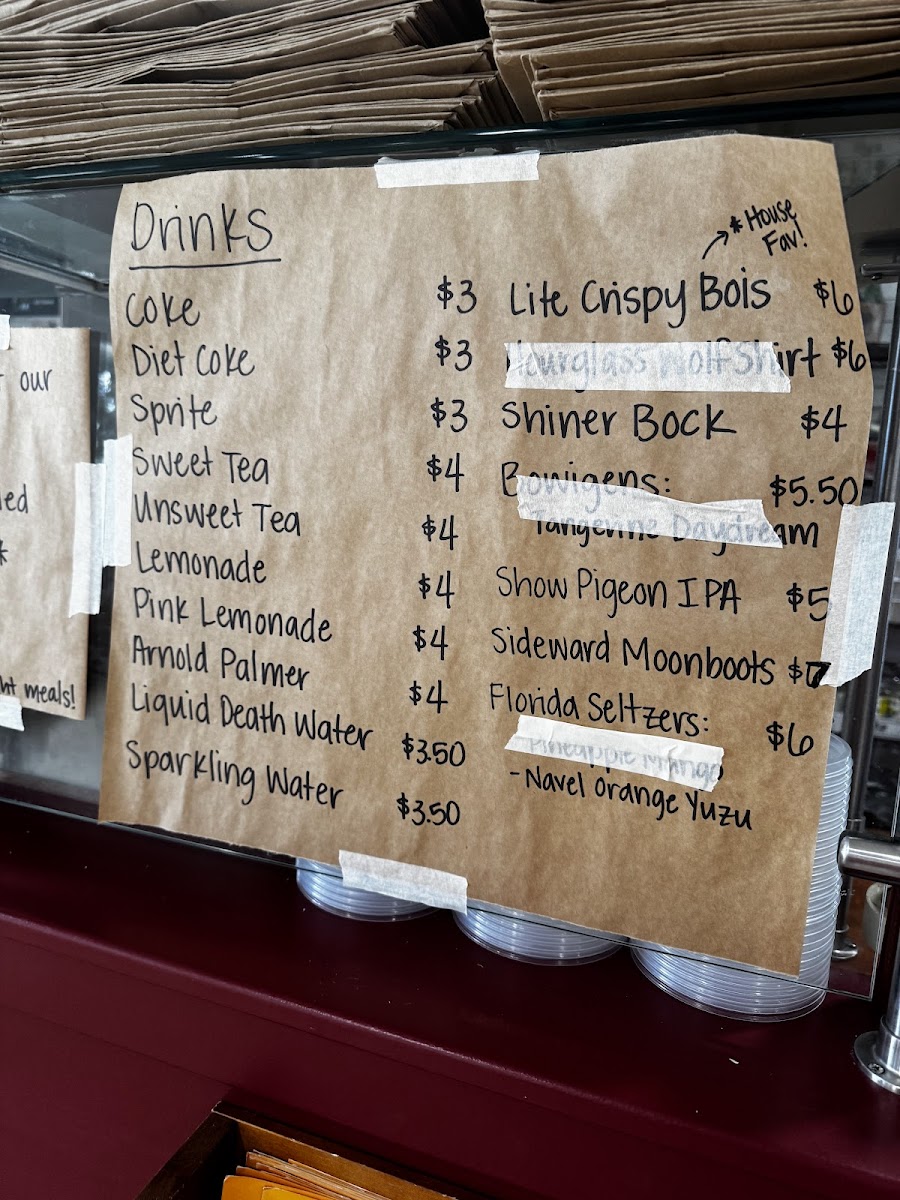 Drinks
Coke $3
Diet Coke $3
Sprite $3
Sweet Tea $4
Unsweet Tea $4
Lemonade $4
Pink Lemonade $4
Arnold Palmer $4
Liquid Death Water $3.50
Sparkling Water $3.50
* House
Fav!
Lite Crispy Bois $6
Hourglass Wolf Shirt $6
Shiner Bock $4
Bowigens: $5.50
Tangerine Daydream
Show Pigeon IPA $5
Sideward Moonboots $7
Florida Seltzers: $6
Pineapple Mango
- Navel Orange Yuzu
our
*
meals!